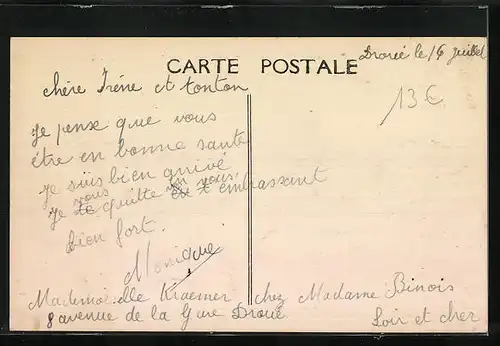 Droué le 16 juillet
CARTE POSTALE
13€
chère Irène et tonton
Je pense que vous
étre en bonne santé
Je suis bien arrivé
vous en vous
Je te quitte en t'embrassant
bien fort.
Monique
Mademoiselle Kraemer chez Madame Binois
8 avenue de la Gare Droué Loir et cher